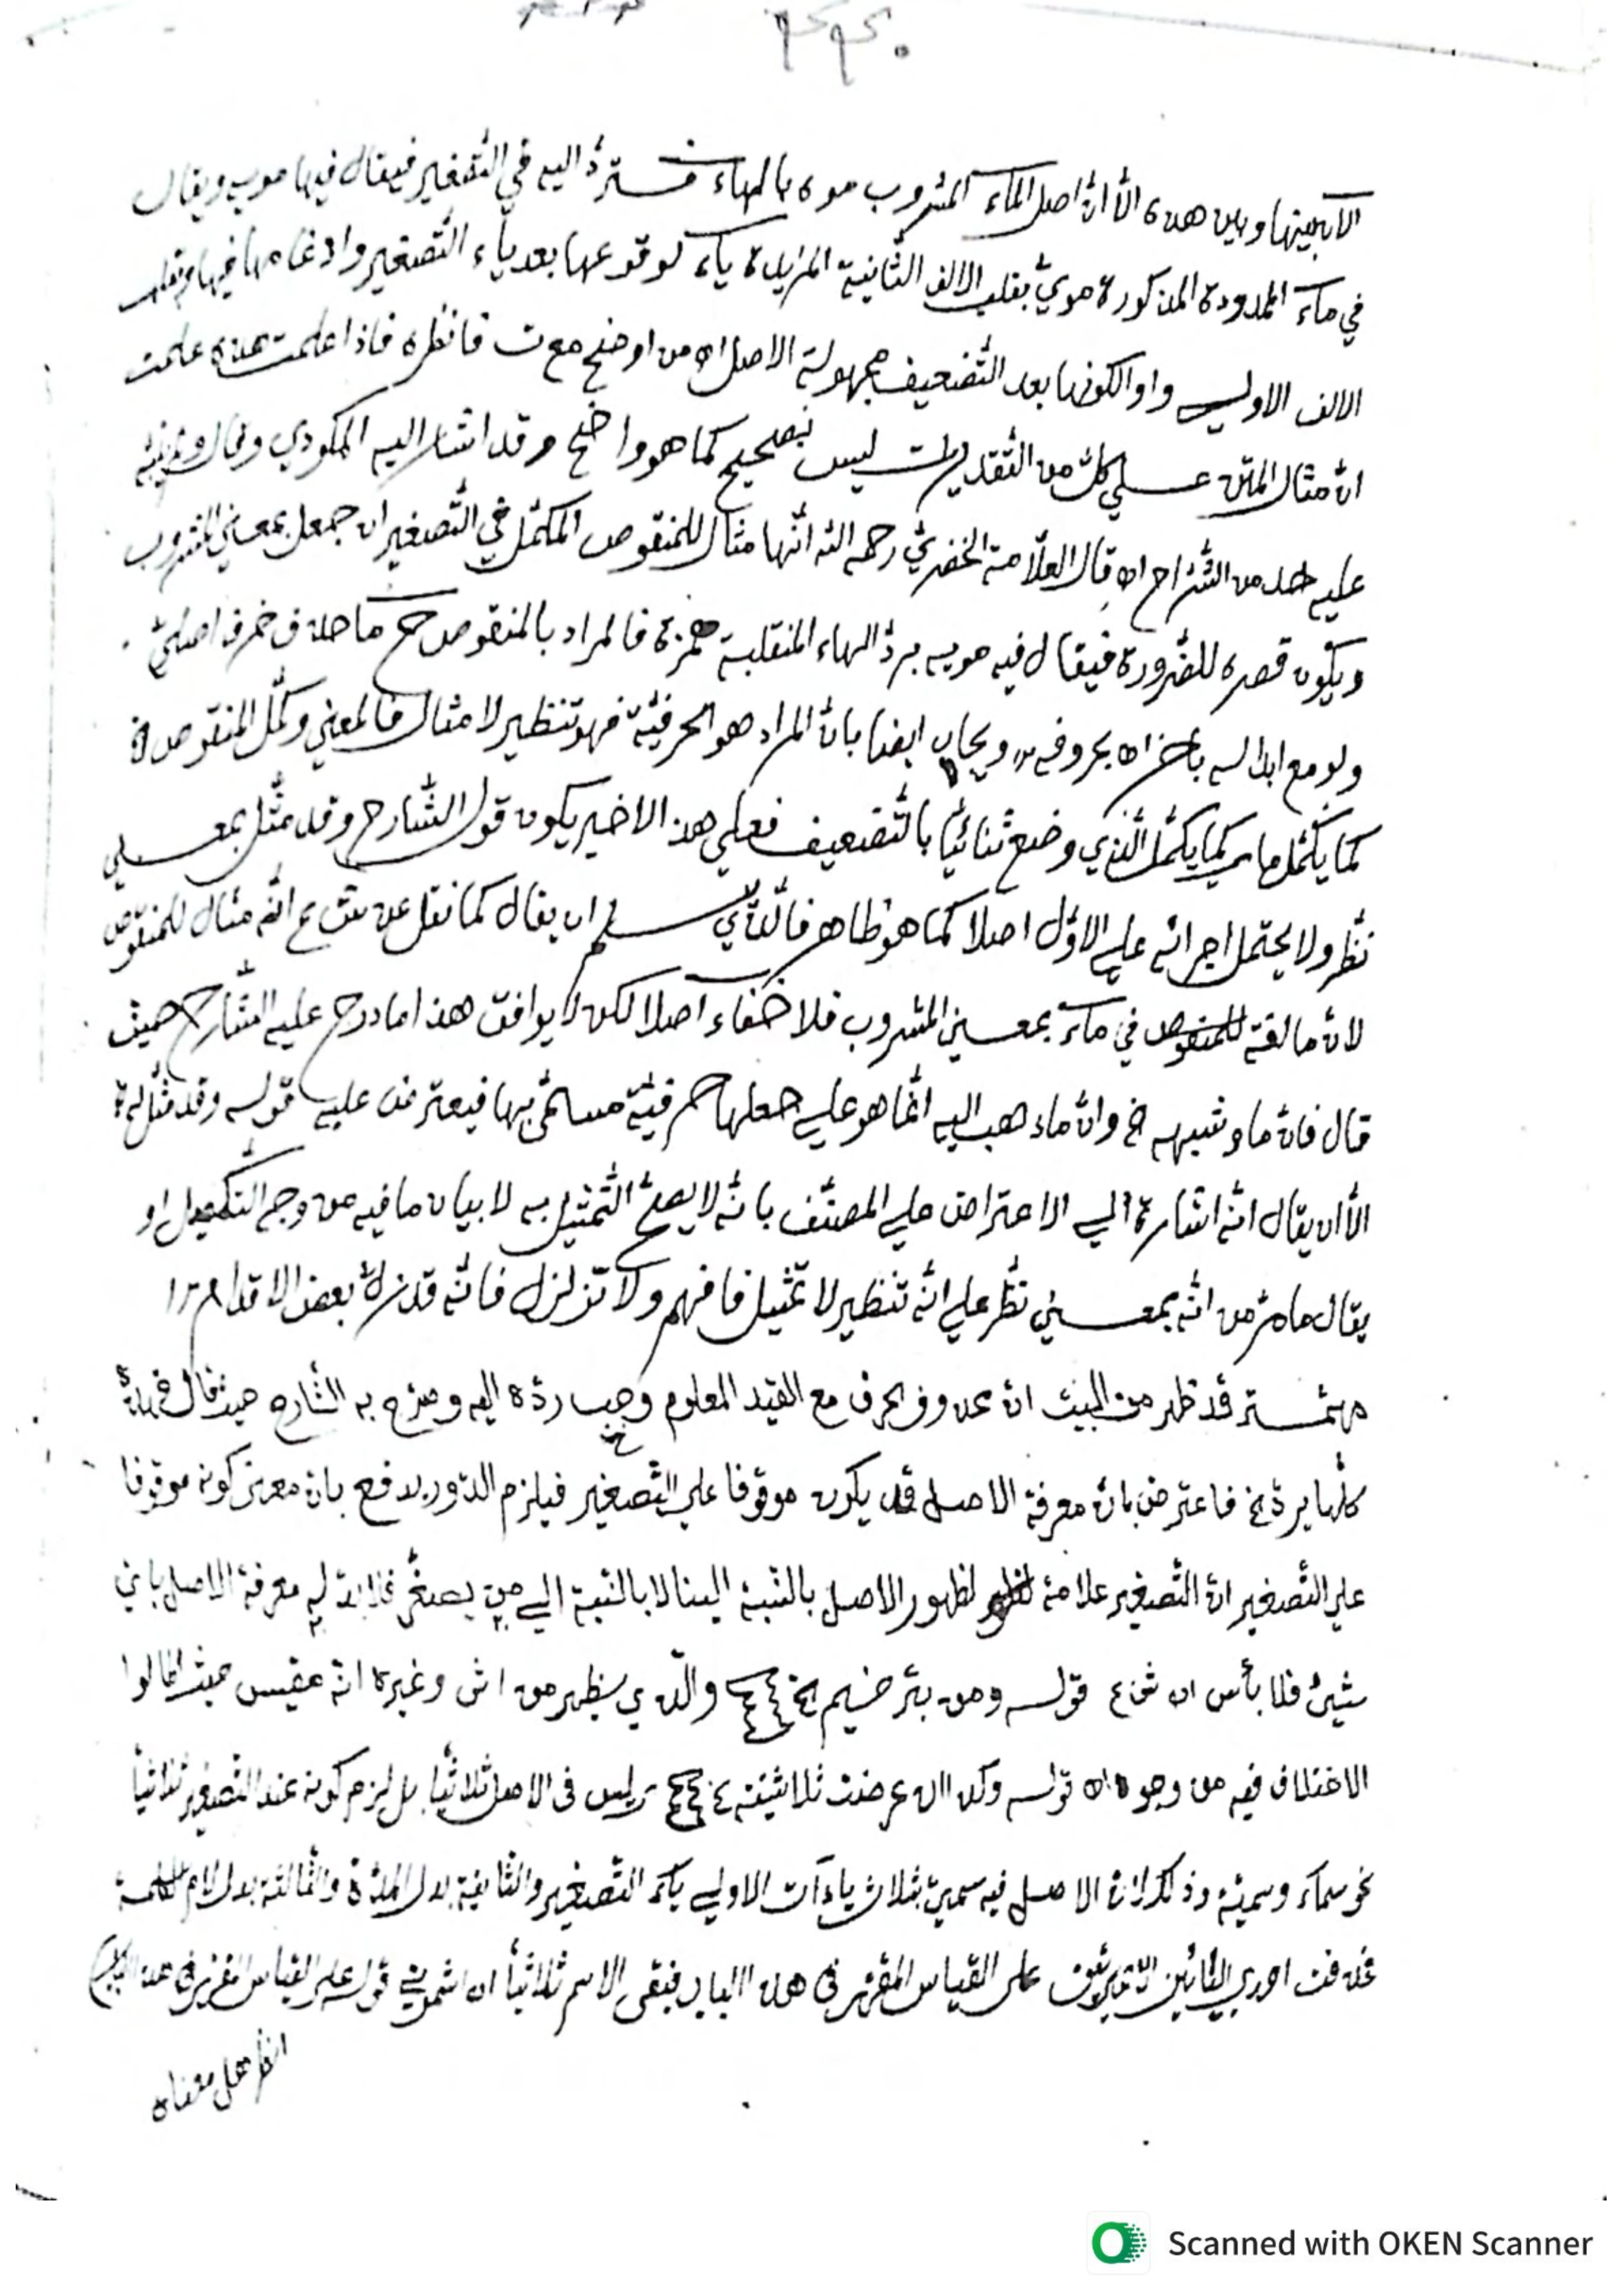 وبين هذه الا انّ اصل الماء المشروب موه بالهاء فستردّ اليه في التّصغير فيقال فيها مويه ويقال
في ماء الممدودة المذكورة مويّ بقلب الالف الثّانية المزيدة ياء لوقوعها بعد ياء التّصغير وادغامها فيها وبقلب
الالف الاولي واوا لكونها بعد التّضعيف مجهولة الاصل اه من اوضح مع ت فانظره فاذا علمت هذه علمت
انّ مثال المتن علي كلّ من التّقديرات ليس بصحيح كما هو واضح وقد اشار اليه المكودي وقال ولم ينبّه
عليه احد من الشّرّاح اه قال العلّامة الخضريّ رحمه الله انّها مثال للمنقوص المكمّل في التّصغير ان جعل بمعني المشروب
ويكون قصره للضّرورة فيقال فيه مويه بردّ الهاء المنقلبة همزة فالمراد بالمنقوص ح ما حذف حرف اصليّ
ولو مع ابداله باخر اه بحروفه ويجاب ايضا بانّ المراد هو الحرفيّة فهو تنظير لا مثال فالمعني وكمّل المنقوص
كما يكمّل ما اي كما يكمّل الّذي وضع ثنائيّا بالتّضعيف فعلي هذا الاخير يكون قول الشّارح وقد مثّل بمعني
نظّر ولا يحتمل اجرائه علي الاوّل اصلا كما هو ظاهر ان يقال كما نقل عن انّه مثال للمنقوص
لانّ ما لغة في ماء بمعني المشروب فلا خفاء اصلا لكن لا يوافق هذا ما درج عليه الشّارح حيث
قال فانّ ما وشبهه الخ وانّ ما ذهب اليه انّما هو علي جعلها حرفيّة مسمّى بها فيعترض عليه قوله وقد مثّل
الّا ان يقال انّه اشارة الي الاعتراض علي المصنّف بانّه لا يصحّ التّمثيل به لا بيان ما فيه من وجه التّكميل او
يقال ما مرّ من انّه بمعني نظّر علي انّه تنظير لا تمثيل فافهم ولا تزلزل فانّه قد زلّ بعض الاقدام
قد ظهر من البيت انّ محذوف الحرف مع القيد المعلوم وجب ردّه اليه وصرّح به الشّارح حيث قال
كلّها يردّ الخ فاعترض بانّ معرفة الاصل قد يكون موقوفا علي التّصغير فيلزم الدّور يدفع بانّ معنى كونه موقوفا
علي التّصغير انّ التّصغير علامة لظهور الاصل بالنّسبة الينا لا بالنّسبة الي من يصغّر فلا بدّ له معرفة الاصل بايّ
شيئ فلا بأس اه قوله ومن بترخيم الخ والّذي يظهر من اش وغيره انّه مقيس حيث قالوا
الاختلاف فيه من وجوه اه قوله وكذا ان عرضت ثلاثيّته الخ اي ليس في الاصل ثلاثيّا بل لزم كونه عند التّصغير ثلاثيّا
نحو سماء وسميّة وذلك لانّ الاصل فيه سميّي بثلاث ياءآت الاولي ياء التّصغير والثّانية بدل المدّة والثّالثة بدل لام الكلمة
فحذفت احدي اليائين علي القياس المقرّر في هذا الباب فبقي الاسم ثلاثيّا اه اشموني قوله علي القياس المقرّر في هذا الباب
انظر محل معناه
Scanned with OKEN Scanner